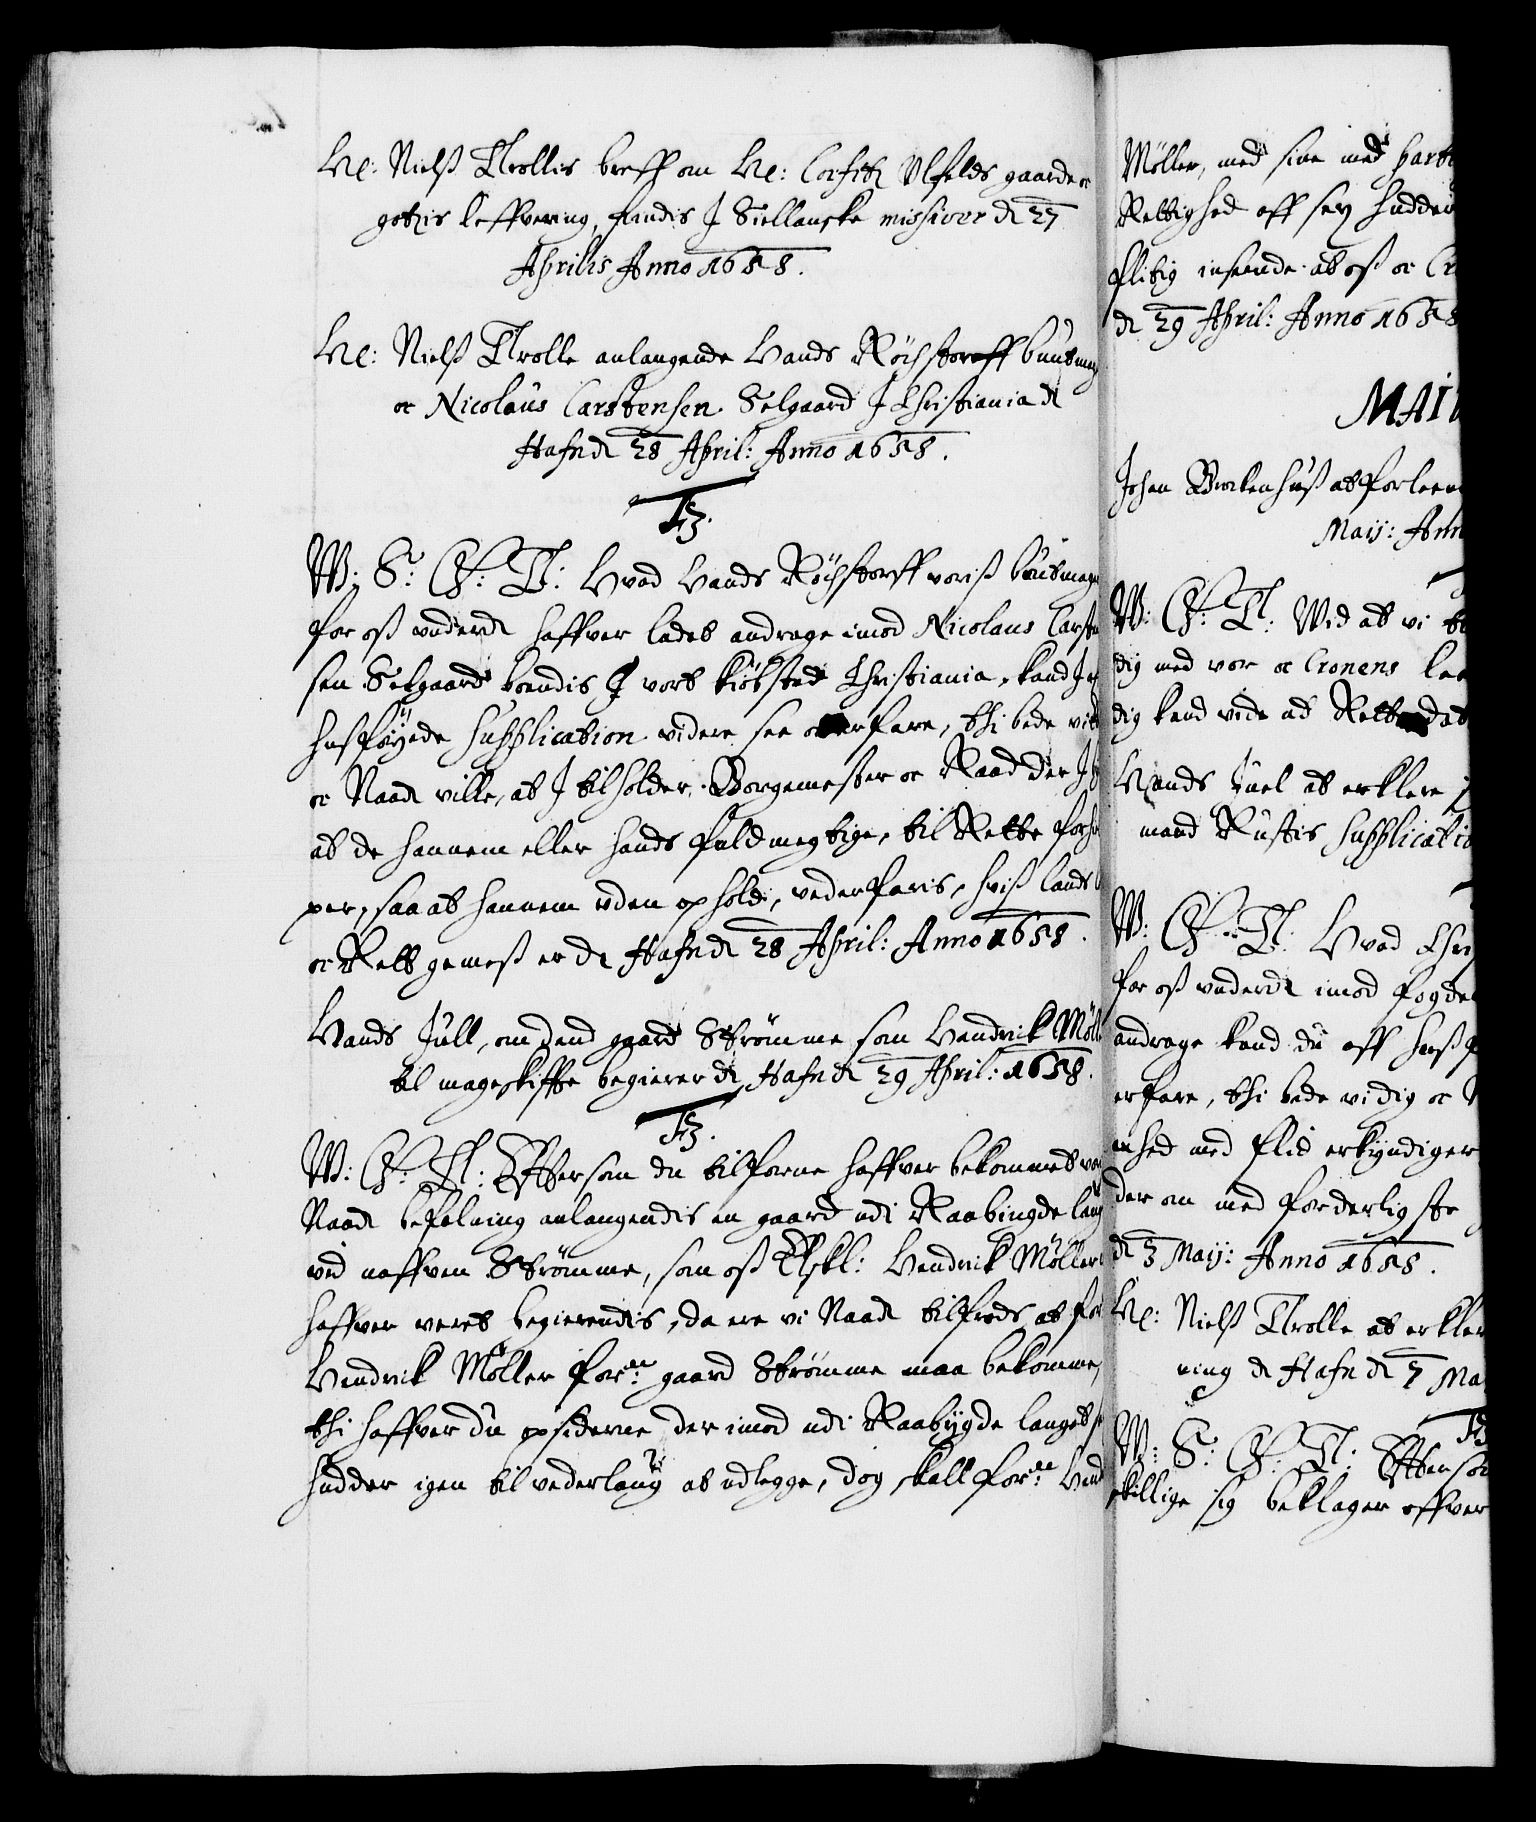 He: Nielß Trollis breff om He: Corfitz Ulfelds gaarde oc
gotzis leffvering, findis J Siellanske missiver dt 27
Aprilis Anno 1658.
He: Nielß Trolle anlangende Hands Röchstorff buntmag
oc Nicolaus Carstensen Selgaard J Christiania dt
Hafn dt 28 April: Anno 1658.
F3.
W: S: G: T: Hvad Hands Röchstorff voriß buntmager
for oß underdt haffver ladet andrage imod Nicolaus Carsten
sen Selgaard boendis J vort kiöbsted Christiania, kand J aff
hosföyede supplication videre see oc erfare, thi bede vi eder
oc Naadt ville, at J tilholder Borgemester oc Raad der J
at de hannem eller hands fuldmegtige, til Rette forhi
per, saa at hannem uden ophold, vederfaris, hviß lands l
oc Rett gemeß er dt Hafn dt 28 April: Anno 1658.
Hands Jull, om dend gaard Strömme som Hendrick Möll
til mageskiffte begierer dt Hafn dt 29 April: 1658.
F3.
W: G: T: Effter som du tilforne haffver bekommet vor
Naadt befalning anlangendis en gaard udi Raabingdelaug
ved naffven Strömme, som oß Elskl: Hendrick Möller
haffver veret begierendis, da ere vi Naadt tilfreds at for
Hendrick Möller forne gaard Strömme maa bekomme,
thi haffver du opsiderne der imod udi Raabygdelauget
huder igen til vederlaug at udlegge, dog skall forne Hend
Möller, med sine med part
Rettighed aff sey huder
flitig inseende at oß oc Cr
dt 29 April: Anno 1658
MAIU
Johan Brockenhuß at forleen
Maij: Anno
W: G: T: Wid at vi
dig med vor oc Cronens lee
dig kand vide ad Rette dat
Hands Juel at erklere
mand Rustis supplicatio
W: G: T: Hvad Chri
for oß underdt imod fogde
andrage kand du aff hoß
erfare, thi bede vi dig oc
enhed med flid erkyndiger
der om med forderligste
dt 3 Maij: Anno 1658.
He: Nielß Trolle at erkler
ning dt Hafn dt 7 Ma
F3
W: S: G: T: Effter som
skillige sig beklager offver